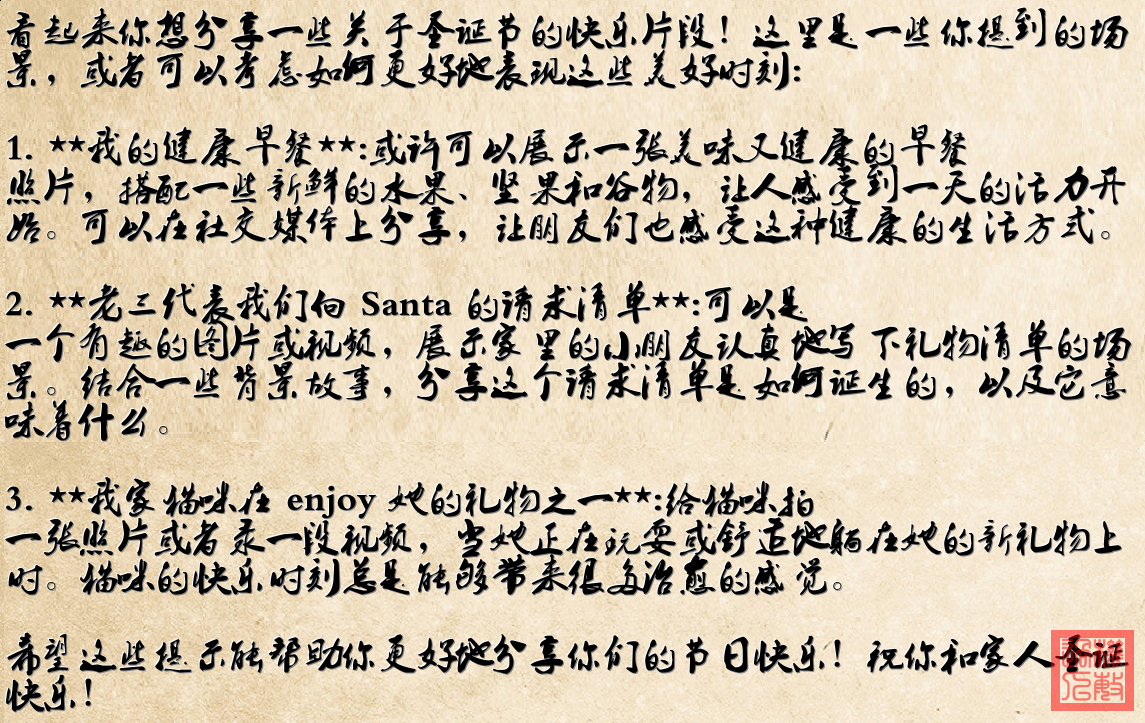 看起来你想分享一些关于圣证节的快乐片段！这里是一些你提到的场
景，或者可以考虑如何更好地表现这些美好时刻：
1. **我的健康早餐**:或许可以展示一张美味又健康的早餐
照片，搭配一些新鲜的水果、坚果和谷物，让人感受到一天的活力开
始。可以在社交媒体上分享，让朋友们也感受这种健康的生活方式。
2. **老三代表我们向 Santa 的请求清单**:可以是
一个有趣的图片或视频，展示家里的小朋友认真地写下礼物清单的场
景。结合一些背景故事，分享这个请求清单是如何证生的，以及它意
味着什么。
3. **我家猫咪在 enjoy 她的礼物之一**:给猫咪拍
一张照片或者录一段视频，当她正在玩耍或舒适地躺在她的新礼物上
时。猫咪的快乐时刻总是能够带来很多治愈的感觉。
希望这些提示能帮助你更好地分享你们的节日快乐！祝你和家人圣证
快乐！